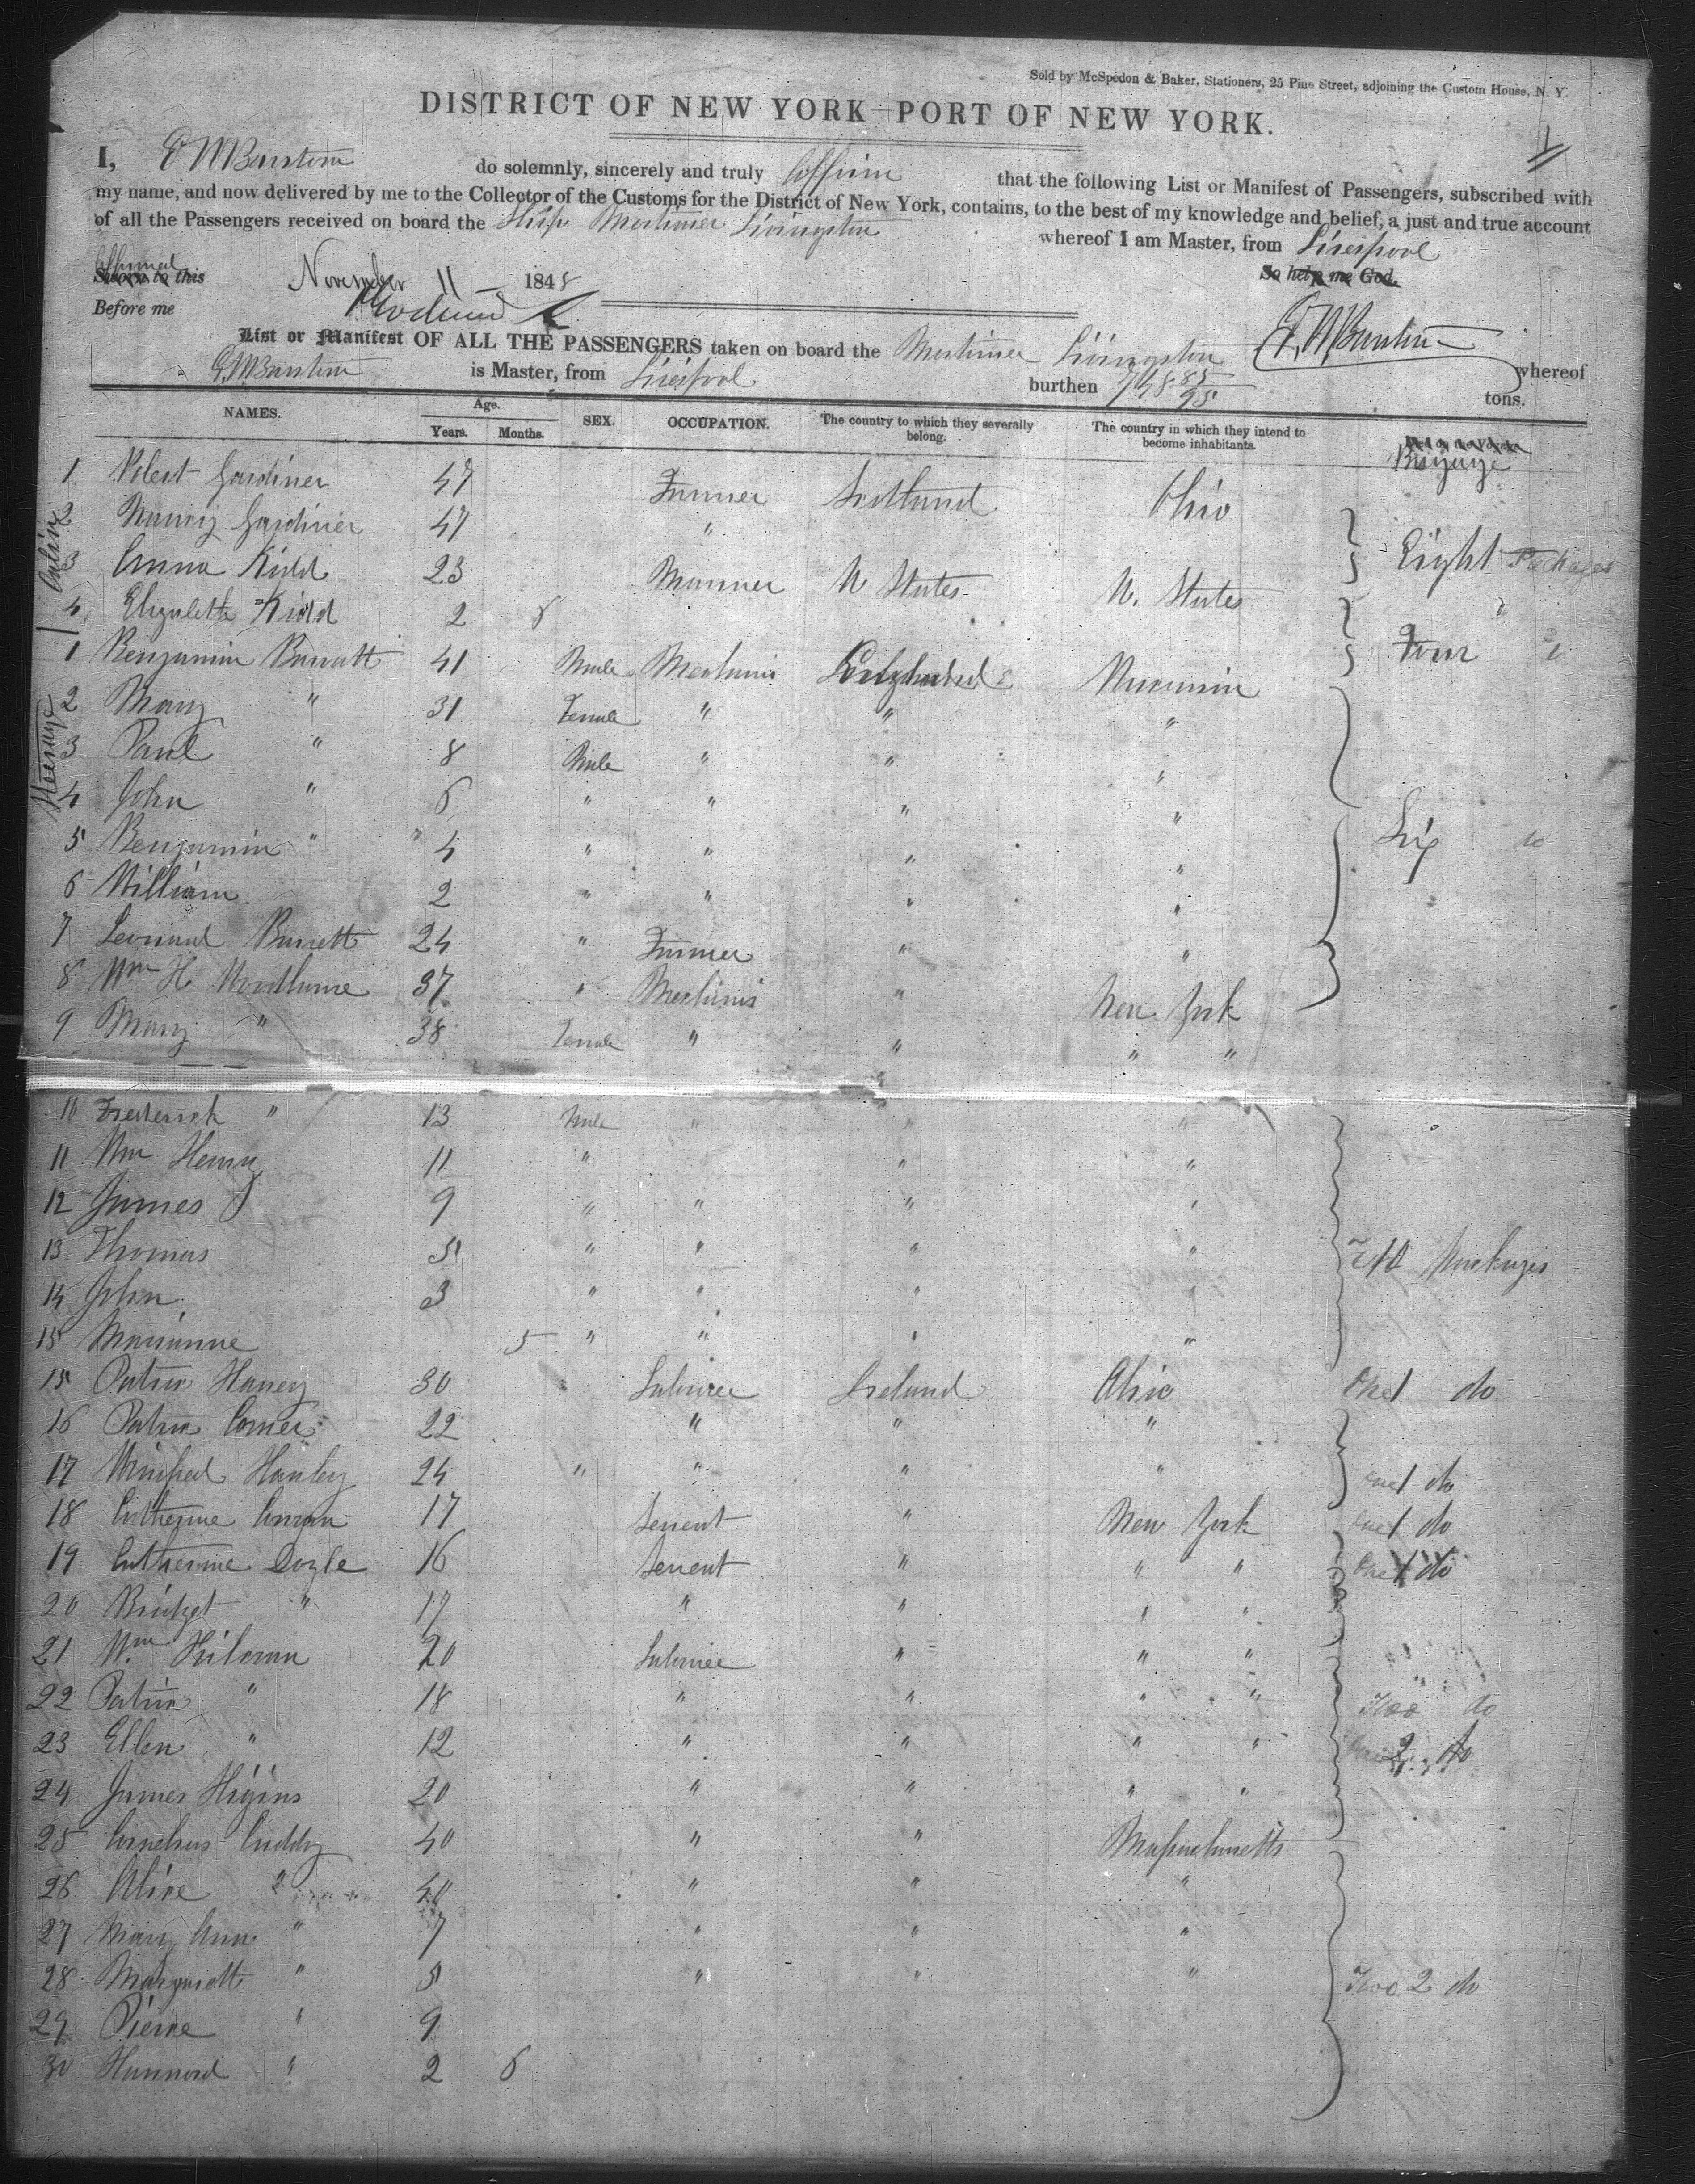 Sold by McSpedon & Baker, Stationers, 25 Pine Street, adjoining the Custom House, N. Y.
DISTRICT OF NEW YORK—PORT OF NEW YORK.
1
I, do solemnly, sincerely and truly affirm that the following List or Manifest of Passengers, subscribed with
my name, and now delivered by me to the Collector of the Customs for the District of New York, contains, to the best of my knowledge and belief, a just and true account
of all the Passengers received on board the Ship Mortimer Livingston whereof I am Master, from Liverpool
affirmed
Sworn to this November 11 1848 So help me God.
Before me
List or Manifest OF ALL THE PASSENGERS taken on board the Mortimer Livingston whereof
is Master, from Liverpool burthen tons.
NAMES. Age. Years. Months. SEX. OCCUPATION. The country to which they severally belong. The country in which they intend to become inhabitants. Baggage
Cabin
1 Robert Gardiner 47 Farmer Scotland Ohio
2 Nancy Gardiner 47 "
3 Anna Kidd 23 Mariner U States U. States Eight Packages
4 Elizabeth Kidd 2 8 "
Steerage
1 Benjamin Barratt 41 Male Mechanic Wisconsin Four do
2 Mary " 31 Female " " "
3 Paul " 8 Male " " "
4 John " 6 " " " "
5 Benjamin " 4 " " " " Six do
6 William 2 " " " "
7 Leonard Barrett 24 " Farmer " "
8 Wm H 37 " Mechanic " New York
9 Mary " 38 Female " " " "
10 Frederick " 13 Male " " "
11 Wm Henry 11 " " "
12 James 9 " " " "
13 Thomas 5 " " " " Packages
14 John 3 " " " "
15 Marianne 5 " " " "
15 Patric Haney 30 Laborer Ireland Ohio One 1 do
16 Patric Comer 22 " " "
17 Winifred Hanley 24 " " " " one 1 do
18 Catherine 17 Servent " New York one 1 do
19 Catherine Doyle 16 Servent " " " One 1 do
20 Bridget " 17 " " " "
21 Wm 20 Laborer " " "
22 Patric " 18 " " " " Two do
23 Ellen " 12 " " " " 2 do
24 James Higins 20 " " " "
25 Cornelius Cuddy 40 " " Massachusetts
26 Alice " 40 " " "
27 Mary Ann " 7 " " "
28 " 5 " " " Two 2 do
29 Pierce " 9
30 " 2 6